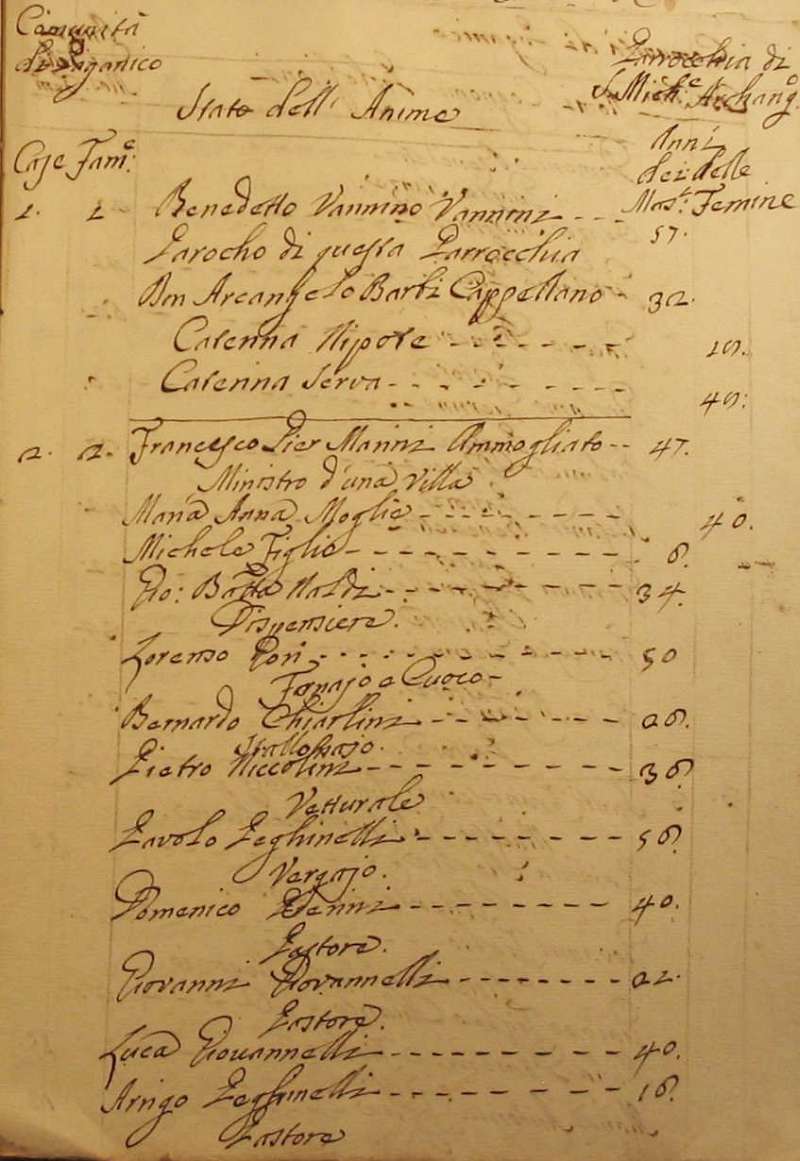 Comunità
di
Parrocchia di
S. Mich.e Archang.o
Stato dell' Anime
Anni
Case Fam.e
dei delle
Mas.i Femine
1. 1. Benedetto Vannino Vannini - - - 57.
Parocho di questa Parrocchia
Arcangelo Barli Cappellano - 32.
Caterina Nipote - - - - - - 19.
Caterina Serva - - - - - - 49.
2. 2. Francesco Pier Marini Ammogliato - - 47.
Ministro d'una Villa
Maria Anna Moglie - - - - - - 40.
Michele Figlio - - - - - - - - 6.
Gio: Batta Naldi - - - - - - - 34.
Dispensiere.
Lorenzo Pori - - - - - - - 50
Fornajo e Cuoco -
Bernardo Chiarlini - - - - - - 26.
Stallonajo.
Pietro Niccolini - - - - - - - 36
Vetturale
Pavolo Peghinelli - - - - - - - 56.
Vergajo.
Domenico - - - - - - - - 40.
Pastore.
Giovanni Giovannelli - - - - - - - 22.
Pastore.
Luca Giovannelli - - - - - - - 40.
Arrigo Peghinelli - - - - - - - 16.
Pastore